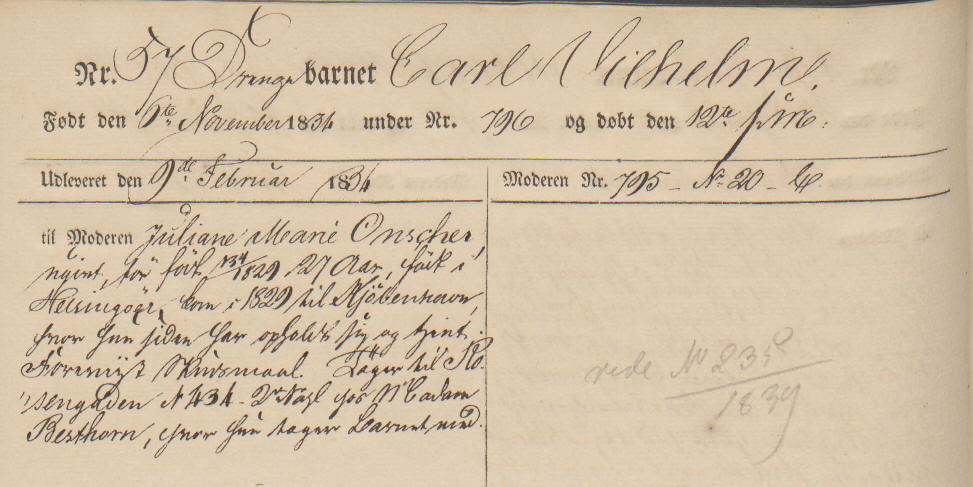 Nr. 57 Drenge barnet Carl Vilhelm.
Født den 6te November 1834 under Nr. 796 og døbt den 12te
Udleveret den 9de Februar 1834
Moderen Nr. 795 - No 20 -
til Moderen Juliane Marie Onscher,
ugivt, før født 134/1829, 27 Aar, født i
Helsingøer, kom i 1829 til Kjöbenhavn,
hvor hun siden har opholdt sig og tjent.
Forevist Skudsmaal. Tager til Ro-
sengaden No 434 - hos Madam
Besthorn, hvor hun tager Barnet med.
No 235
1839